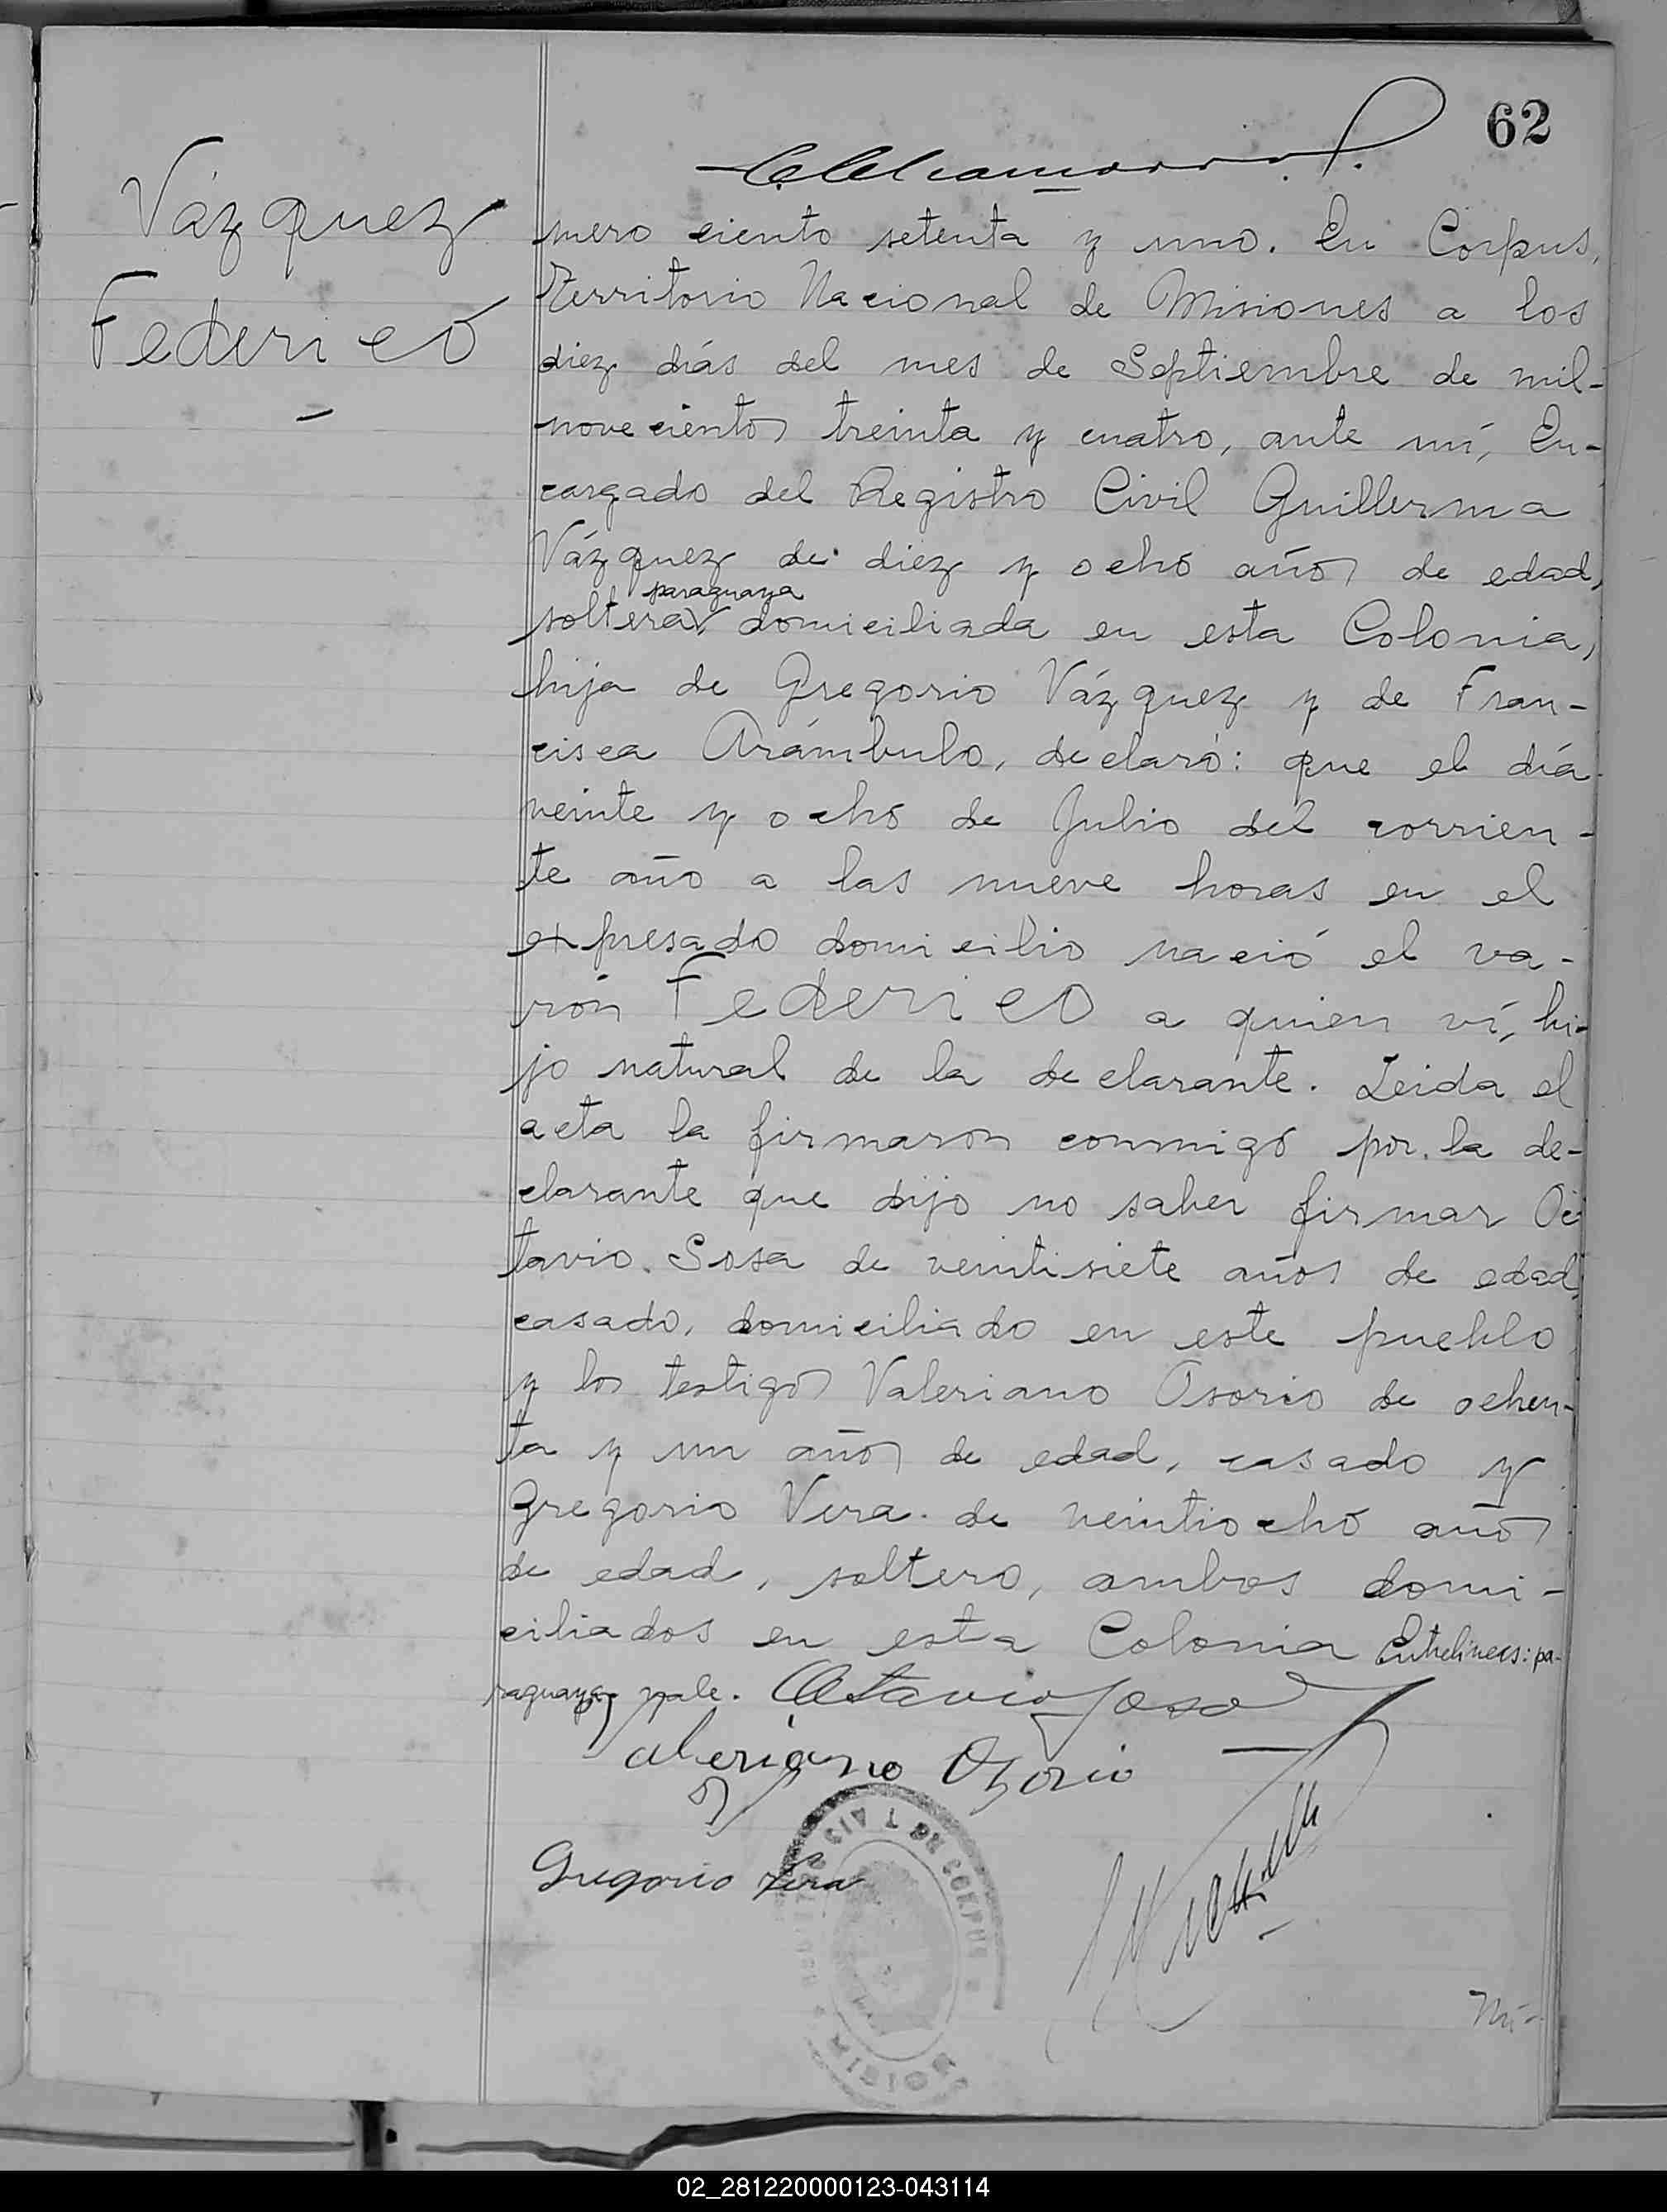 62
Vázquez
Federico
mero ciento setenta y uno. En Corpus,
Territorio Nacional de Misiones a los
diez días del mes de Septiembre de mil-
novecientos treinta y cuatro, ante mí, En-
cargado del Registro Civil Guillerma
Vázquez de diez y ocho años de edad,
paraguaya
soltera, domiciliada en esta Colonia,
hija de Gregorio Vázquez y de Fran-
cisca Arámbulo, declaró: que el día
veinte y ocho de Julio del corrien-
te año a las nueve horas en el
expresado domicilio nació el va-
rón Federico a quien ví, hi-
jo natural de la declarante. Leida el
acta la firmaron conmigo por la de-
clarante que dijo no saber firmar Oc
tavio Sosa de veintisiete años de edad,
casado, domiciliado en este pueblo
y los testigos Valeriano Osorio de ochen-
ta y un años de edad, casado y
Gregorio Vera de veintiocho años
de edad, soltero, ambos domi-
ciliados en esta Colonia Entrelineas: pa-
raguaya, vale. Octavio Sosa
Valeriano Osorio
Gregorio Vera
DE CORPUS
Nú-
02_281220000123-043114